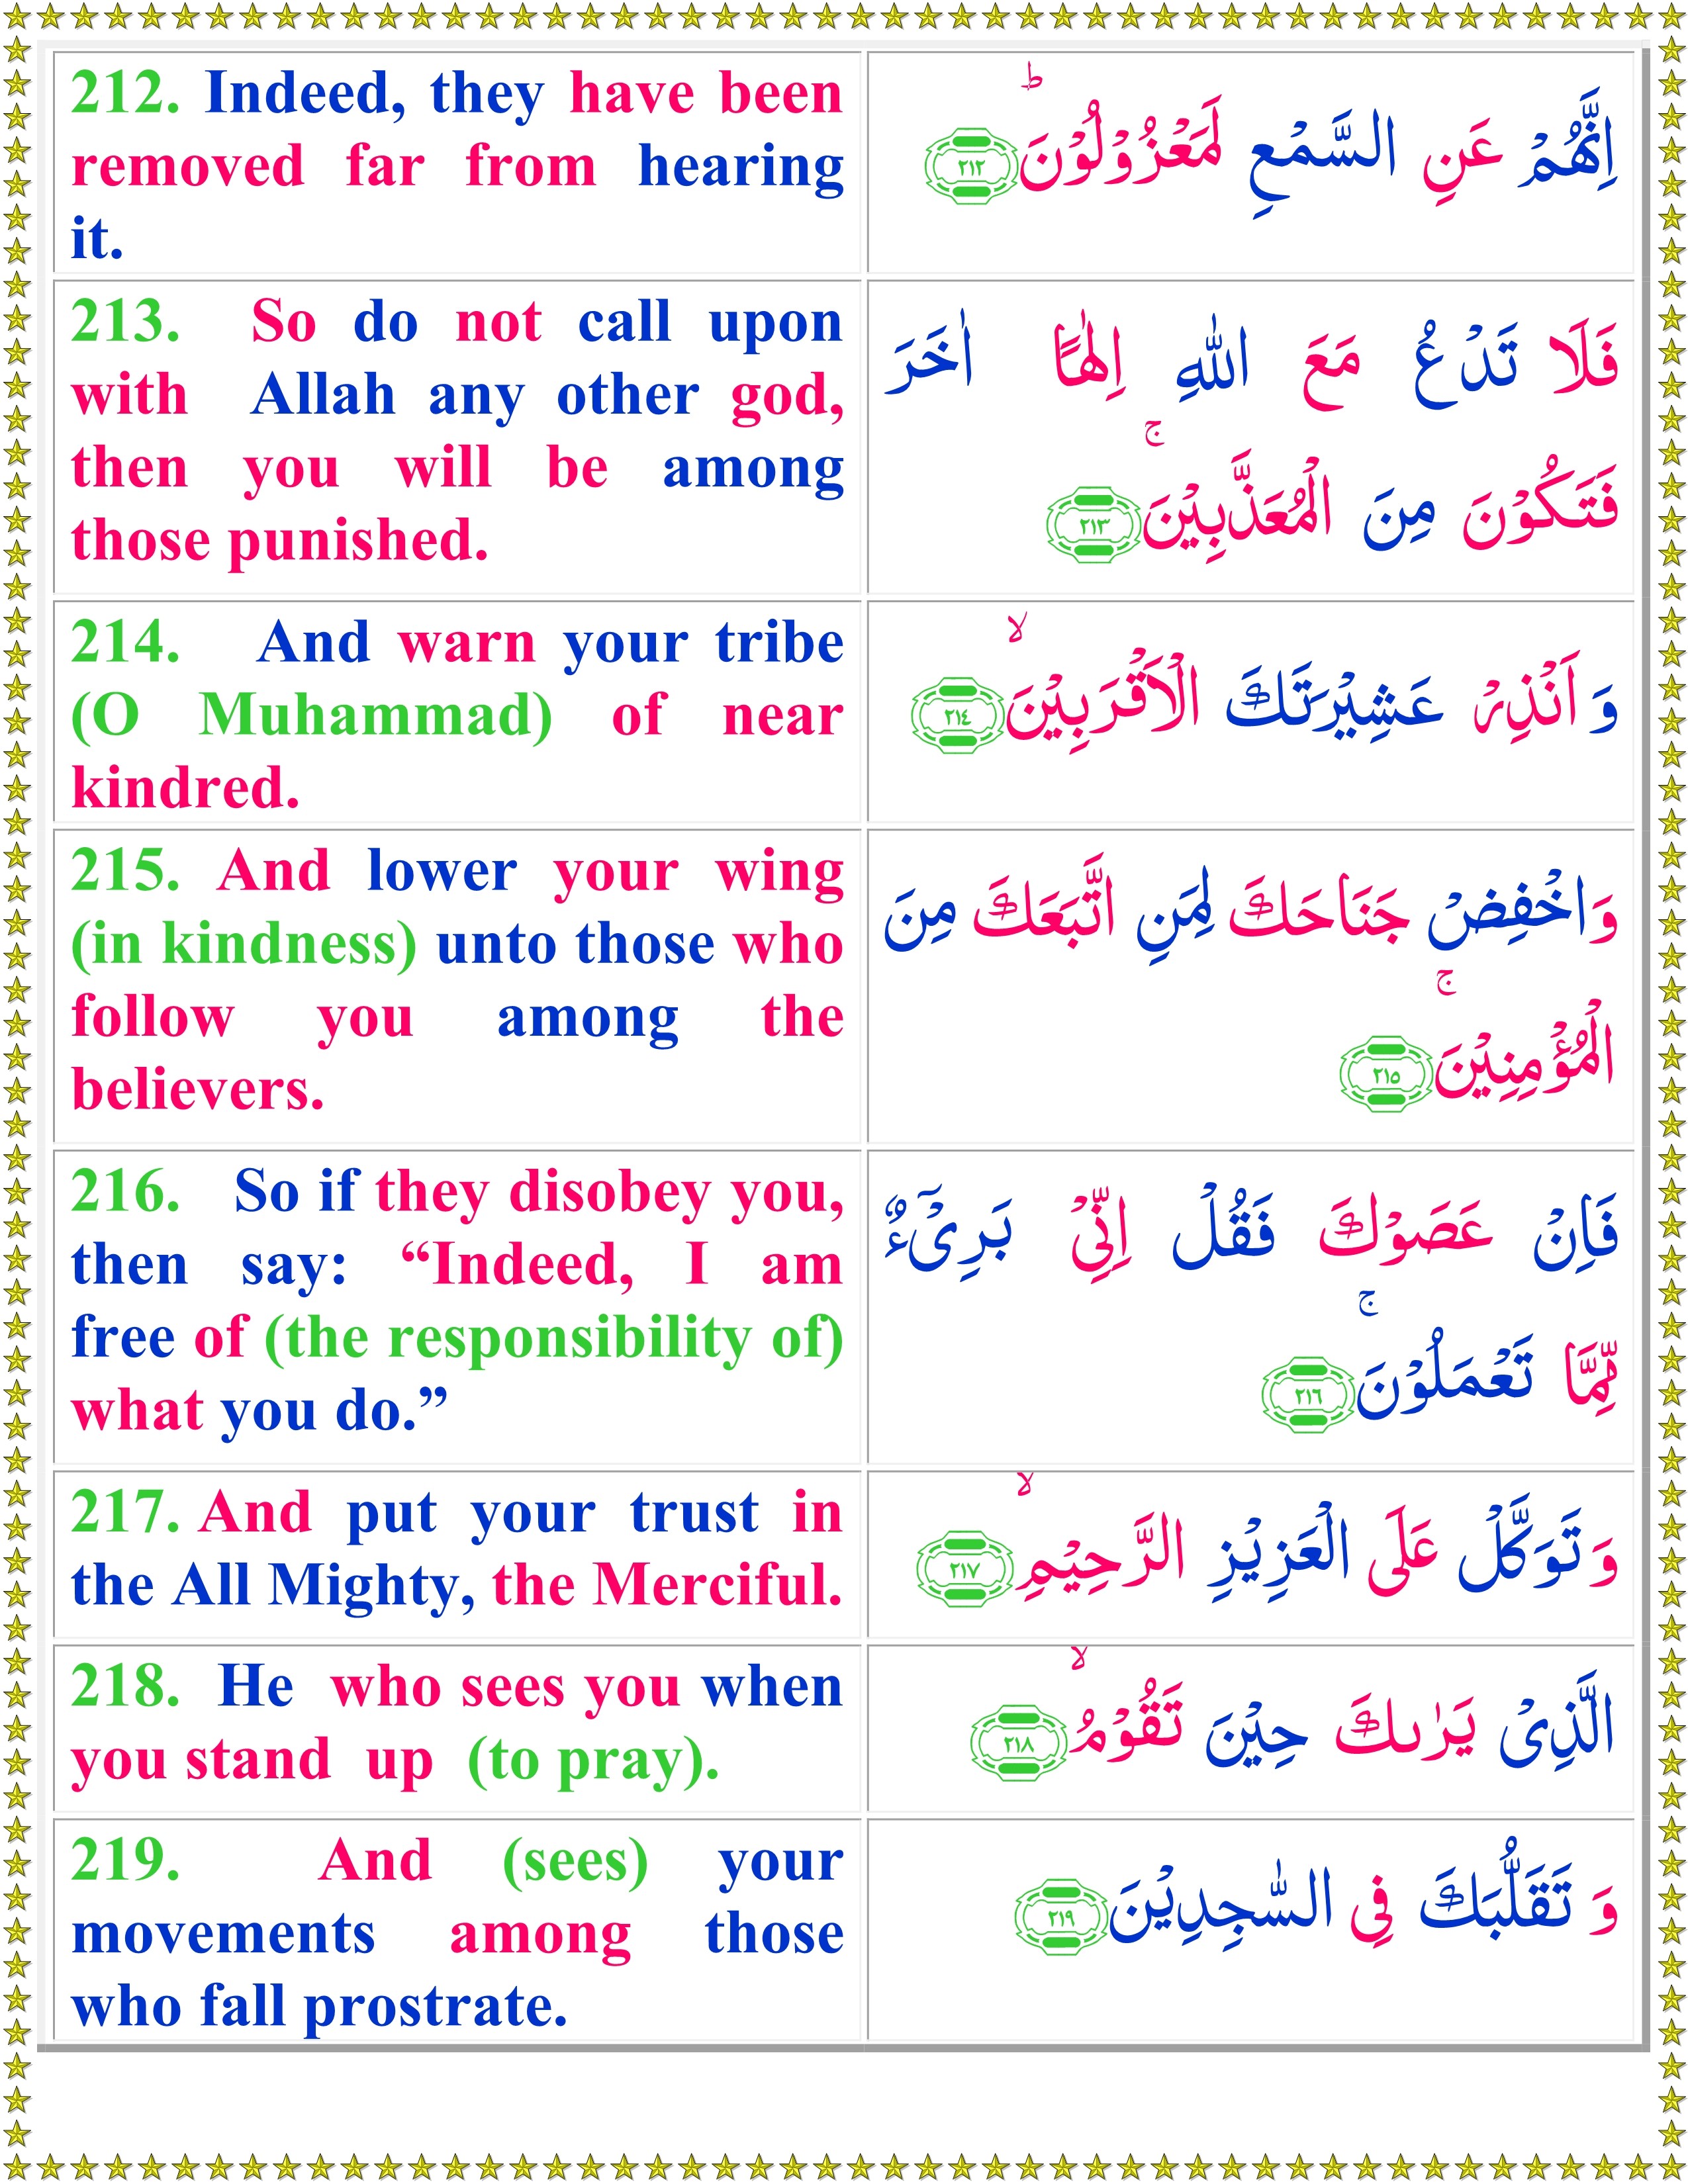 212. Indeed, they have been
removed far from hearing
it.
اِنَّهُمْ عَنِ السَّمْعِ لَمَعْزُوْلُوْنَؕ ٢١٢
213. So do not call upon
with Allah any other god,
then you will be among
those punished.
فَلَا تَدْعُ مَعَ اللّٰهِ اِلٰهًا اٰخَرَ
فَتَكُوْنَ مِنَ الْمُعَذَّبِيْنَۚ ٢١٣
214. And warn your tribe
(O Muhammad) of near
kindred.
وَ اَنْذِرْ عَشِيْرَتَكَ الْاَقْرَبِيْنَۙ ٢١٤
215. And lower your wing
(in kindness) unto those who
follow you among the
believers.
وَاخْفِضْ جَنَاحَكَ لِمَنِ اتَّبَعَكَ مِنَ
الْمُؤْمِنِيْنَۚ ٢١٥
216. So if they disobey you,
then say: “Indeed, I am
free of (the responsibility of)
what you do.”
فَاِنْ عَصَوْكَ فَقُلْ اِنِّىْ بَرِىْٓءٌ
مِّمَّا تَعْمَلُوْنَۚ ٢١٦
217. And put your trust in
the All Mighty, the Merciful.
وَ تَوَكَّلْ عَلَى الْعَزِيْزِ الرَّحِيْمِۙ ٢١٧
218. He who sees you when
you stand up (to pray).
الَّذِىْ يَرٰٮكَ حِيْنَ تَقُوْمُۙ ٢١٨
219. And (sees) your
movements among those
who fall prostrate.
وَ تَقَلُّبَكَ فِى السّٰجِدِيْنَ ٢١٩